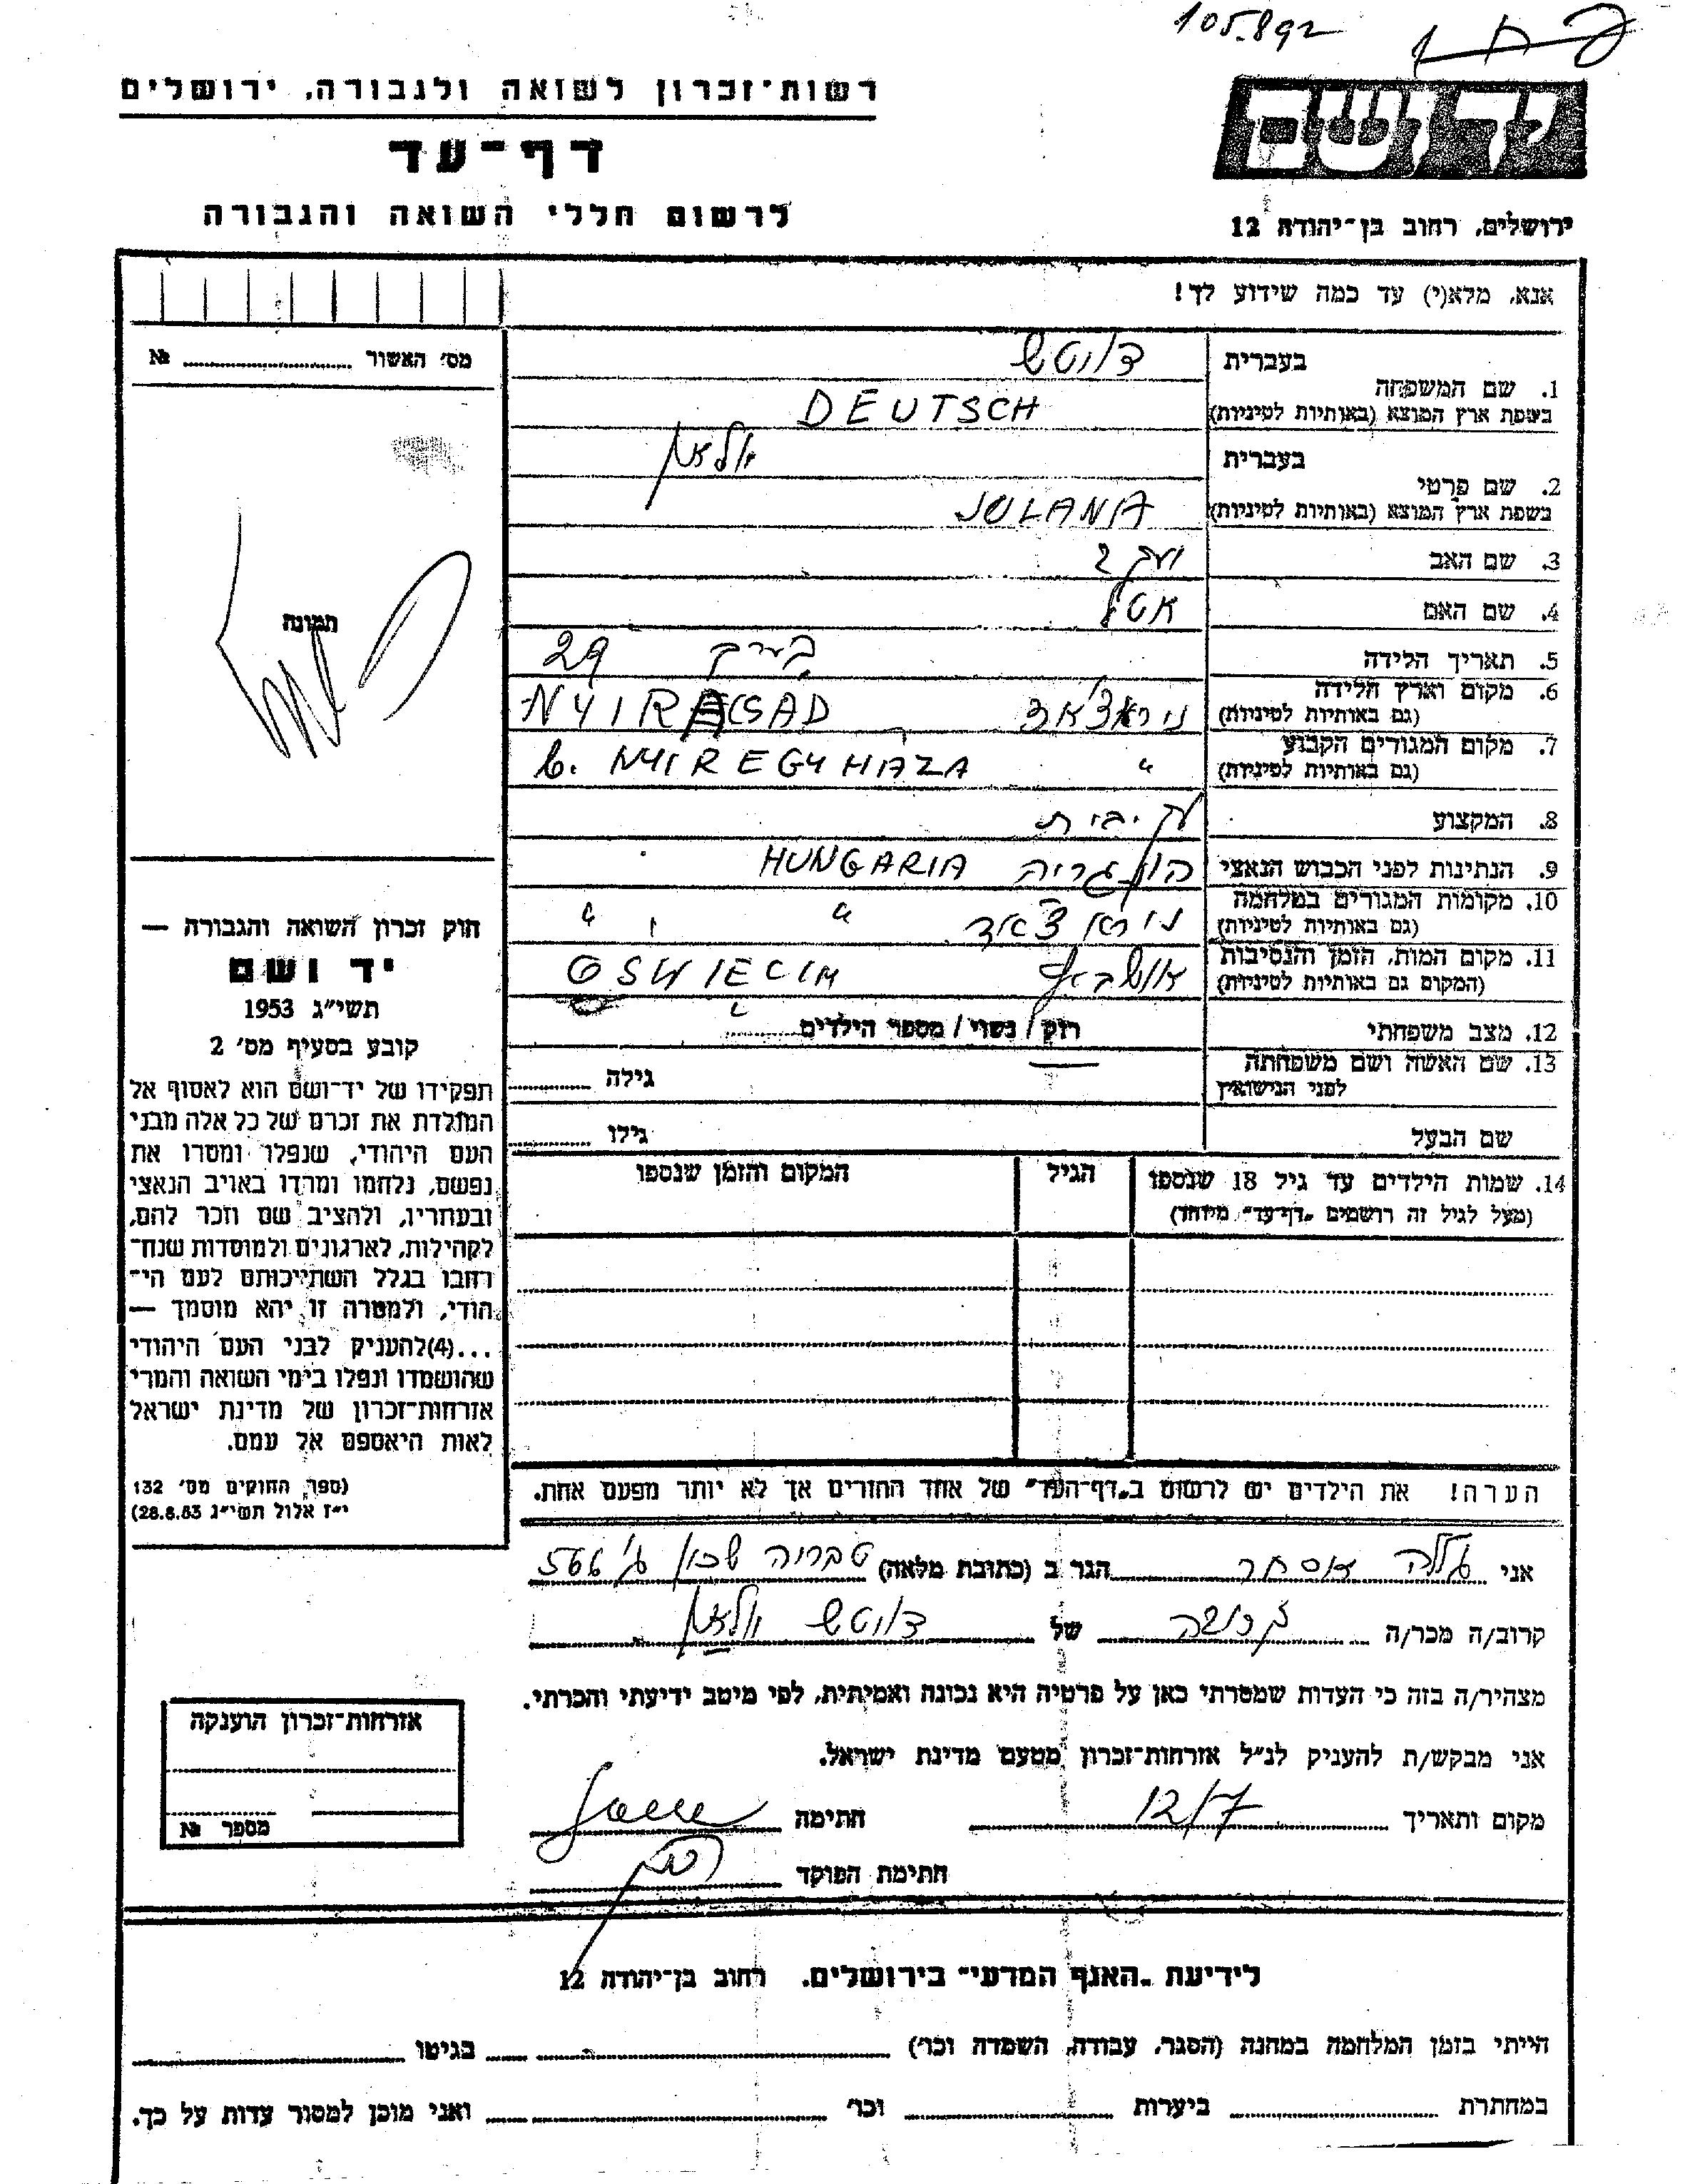 105.892
רשות־זכרון לשואה ולגבורה, ירושלים
דף־עד
לרשום חללי השואה והגבורה
יד ושם
ירושלים, רחוב בן־יהודה 12
אנא, מלא(י) עד כמה שידוע לך!
מס׳ האשור № 
תמונה
חוק זכרון השואה והגבורה —
יד ושם
תשי״ג 1953
קובע בסעיף מס׳ 2
תפקידו של יד־ושם הוא לאסוף אל
המולדת את זכרם של כל אלה מבני
העם היהודי, שנפלו ומסרו את
נפשם, נלחמו ומרדו באויב הנאצי
ובעוזריו, ולהציב שם וזכר להם,
לקהילות, לארגונים ולמוסדות שנח־
רחבו בגלל השתייכותם לעם הי־
הודי, ולמטרה זו יהא מוסמך —
...(4)להעניק לבני העם היהודי
שהושמדו ונפלו בימי השואה והמרי
אזרחות־זכרון של מדינת ישראל
לאות היאספם אל עמם.
(ספר החוקים מס׳ 132
י״ז אלול תשי״ג 28.8.53)
1. שם המשפחה
בעברית דויטש
בשפת ארץ המוצא (באותיות לטיניות) DEUTSCH
2. שם פרטי
בעברית יולאן
בשפת ארץ המוצא (באותיות לטיניות) JULANA
3. שם האב יעקב
4. שם האם אסתר
5. תאריך הלידה בערך 29
6. מקום וארץ הלידה
(גם באותיות לטיניות) NYIRACSAD
7. מקום המגורים הקבוע
(גם באותיות לטיניות) " b. NYIREGYHAZA
8. המקצוע עק. בית
9. הנתינות לפני הכבוש הנאצי הונגריה HUNGARIA
10. מקומות המגורים במלחמה
(גם באותיות לטיניות) " "
11. מקום המות, הזמן והנסיבות
(המקום גם באותיות לטיניות) OSWIECIM
12. מצב משפחתי רוק / נשוי / מספר הילדים
13. שם האשה ושם משפחתה
לפני הנישואין גילה
שם הבעל גילו
14. שמות הילדים עד גיל 18 שנספו
(מעל לגיל זה רושמים „דף־עד״ מיוחד)
הגיל
המקום והזמן שנספו
הערה! את הילדים יש לרשום ב„דף־העד״ של אחד ההורים אך לא יותר מפעם אחת.
אני הגר ב (כתובת מלאה) טבריה שכון ג׳ 566
קרוב/ה מכר/ה קרובה של דויטש יולאן
מצהיר/ה בזה כי העדות שמסרתי כאן על פרטיה היא נכונה ואמיתית, לפי מיטב ידיעתי והכרתי.
אני מבקש/ת להעניק לנ״ל אזרחות־זכרון מטעם מדינת ישראל.
מקום ותאריך 12/7 חתימה
חתימת הפוקד
אזרחות־זכרון הוענקה
מספר №
לידיעת „האגף המדעי״ בירושלים. רחוב בן־יהודה 12
הייתי בזמן המלחמה במחנה (הסגר, עבודה, השמדה וכו׳) בגיטו
במחתרת ביערות וכו׳ ואני מוכן למסור עדות על כך.